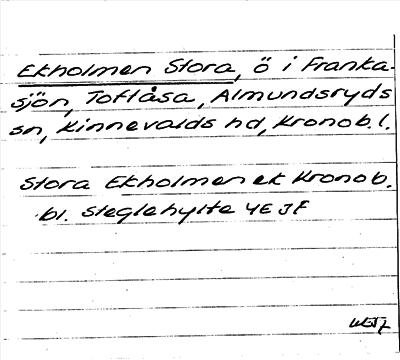 Ekholmen Stora, ö i Franka-
sjön, Toftåsa, Almundsryds
sn, Kinnevalds hd, Kronob.l.
Stora Ekholmen ek Kronob.
bl. Steglehylte 4E JF